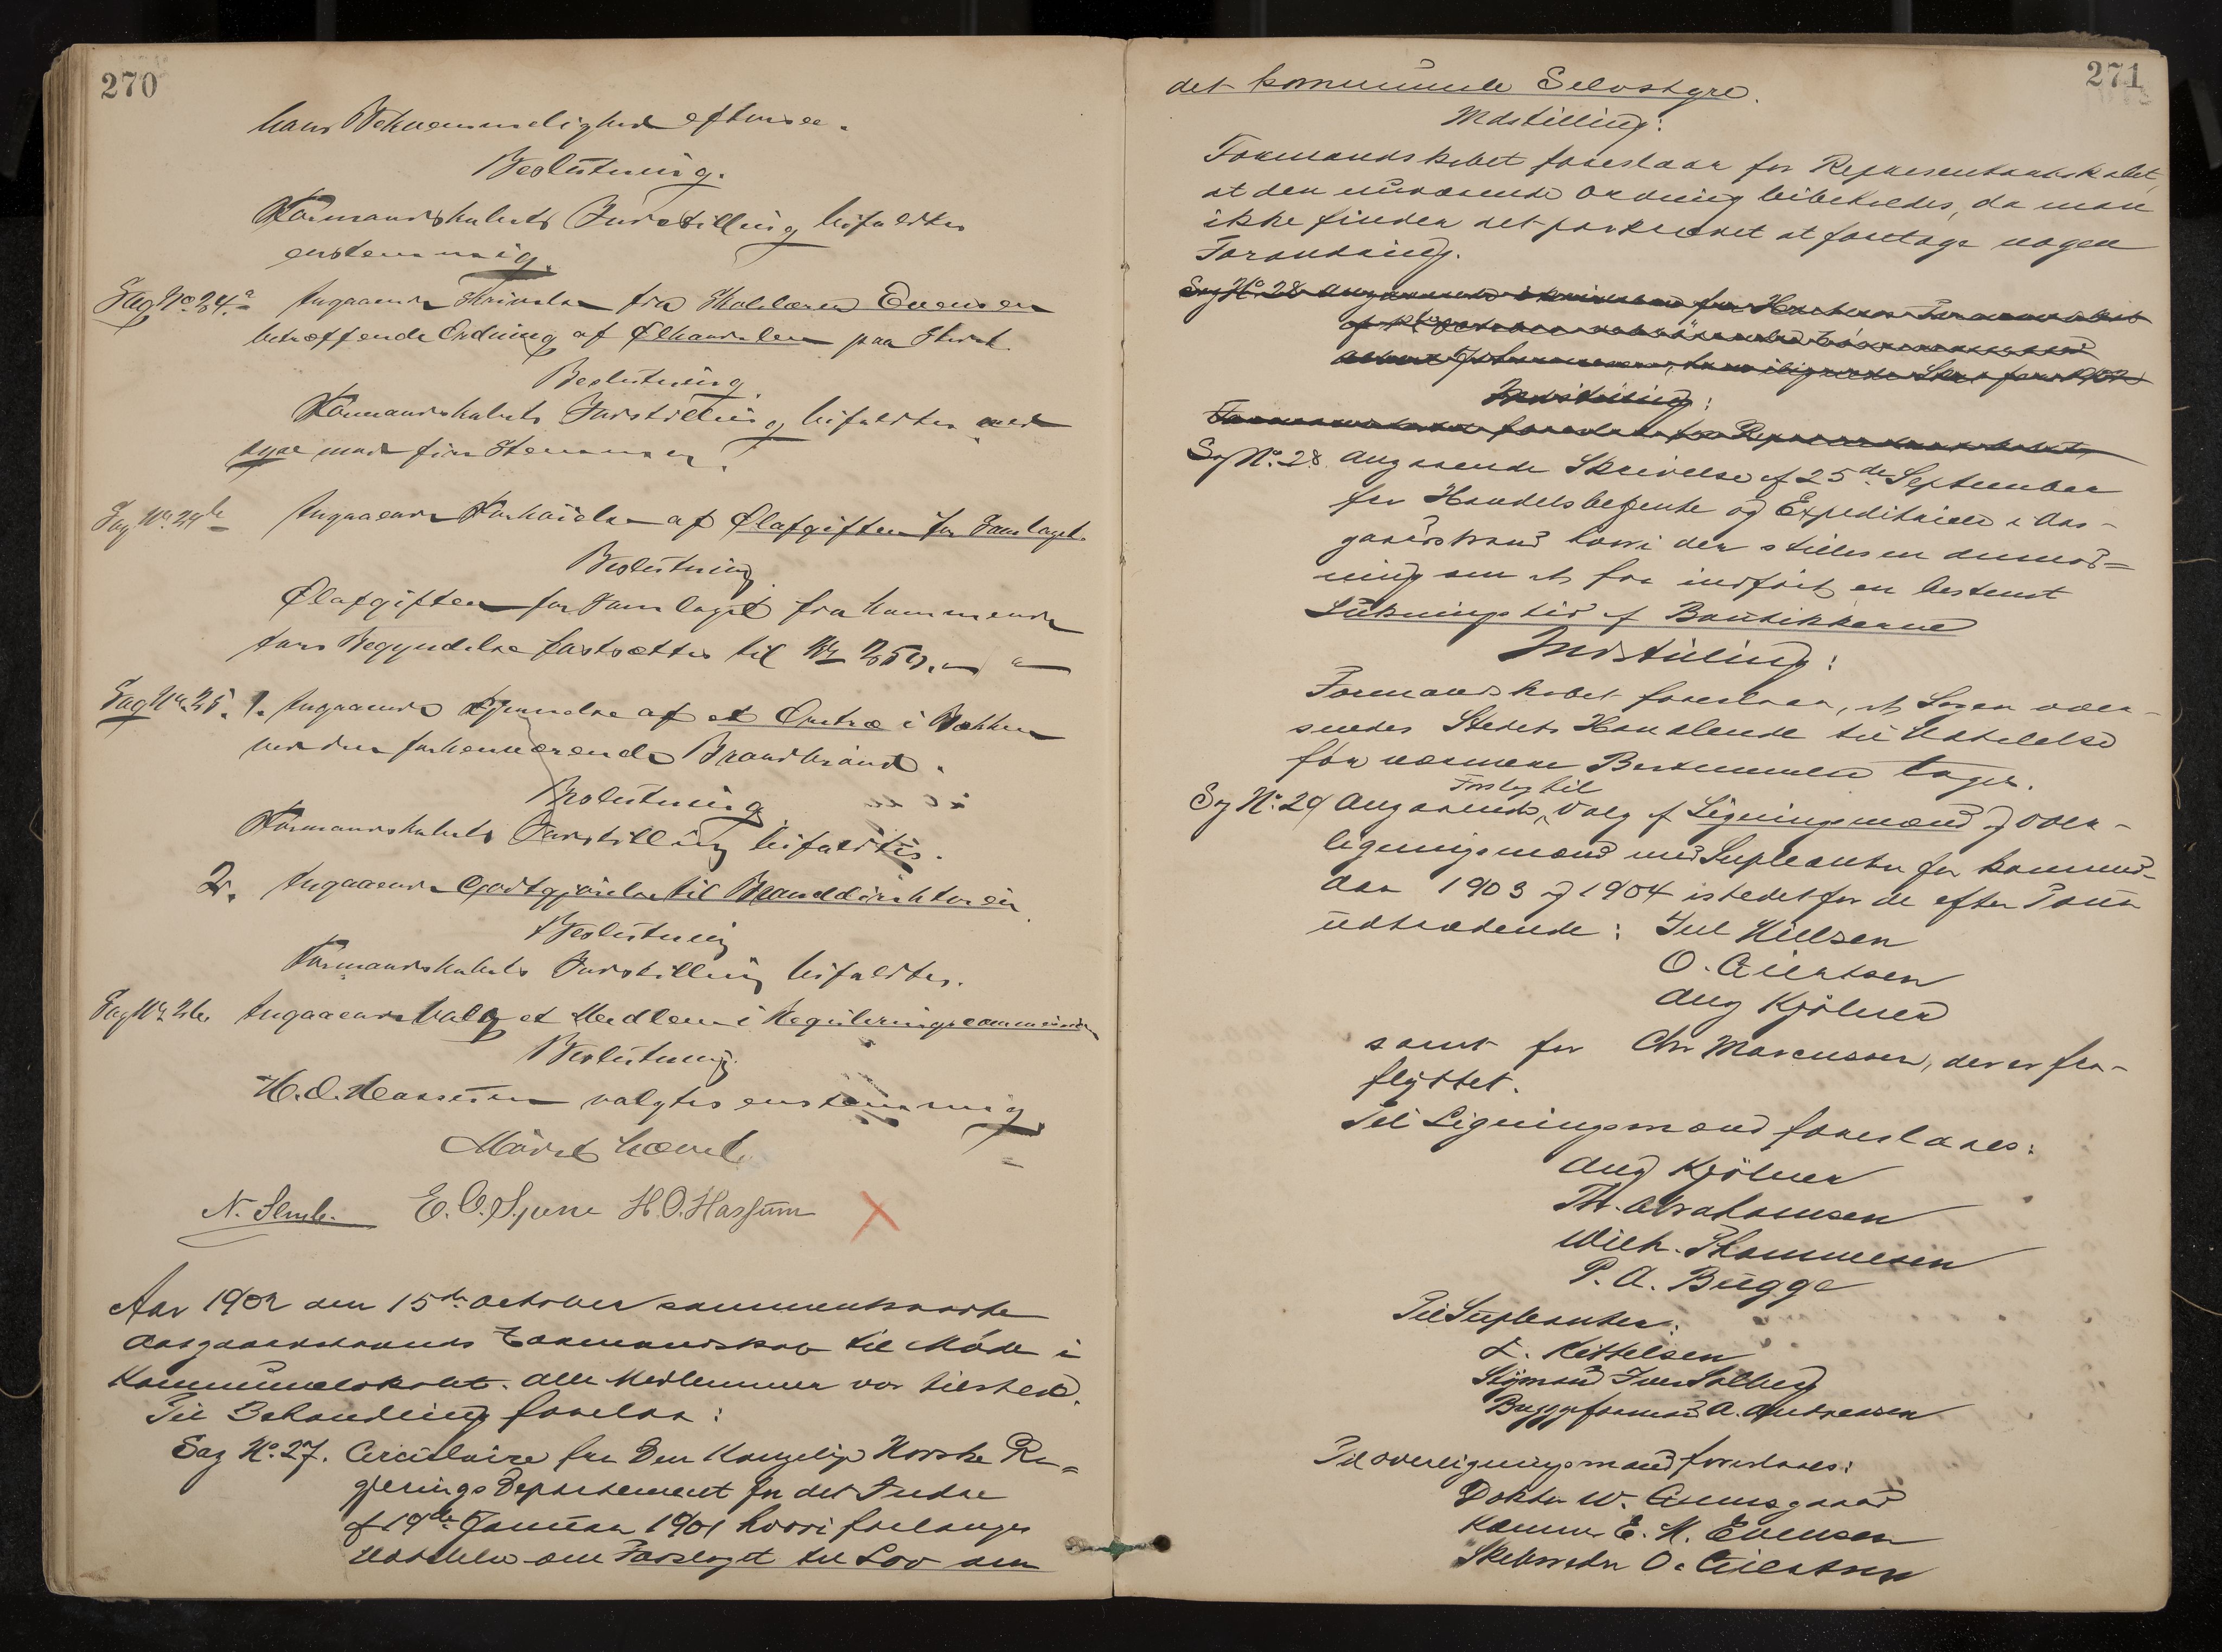 270
hans Bekvemmelighed eftersee.
Beslutning.
Formandskabets Indstilling bifaldtes
enstemmig.
Sag No. 24a Angaaende Skrivelse fra Skolelærer Evensen
betræffende Ordning af Ølhandelen paa Stedet
Beslutning
Formandskabets Indstilling bifaldtes med
syv mod fire Stemmer.
Sag No. 24b Angaaende Forhøielse af Ølafgiften for Samlaget.
Beslutning
Ølafgiften for Samlaget fra kommende
Aars Begyndelse fastsættes til Kr 250.
Sag No. 25. 1. Angaaende af et i Bækken
ved den forhenværende Brandbrønd.
Beslutning
Formandskabets Indstilling bifaldtes.
2. Angaaende Godtgjørelse til Branddirektøren
Beslutning
Formandskabets Indstilling bifaldtes.
Sag No. 26. Angaaende Valg et Medlem i Reguleringscommissionen
Beslutning
H. O. Hassum valgtes enstemmig.
N. E. O. H. O. Hassum
Aar 1902 den 15de October sammentraadte
Aasgaardstrands Formandskab til Møde i
Kommunelokalet. Alle Medlemmer var tilstede.
Til Behandling forelaa:
Sag No. 27. Circulaire fra Den Kongelige Norske Re-
gjerings Departement for det Indre
af 19de Januar 1901 hvori forlanges
Udtalelse om Forslaget til Lov om
271
det kommunale Selvstyre.
Indstilling:
Formandskabet foreslaar for Repræsentantskabet,
at den nuværende Ordning bibeholdes, da man
ikke finder det paakrævet at foretage nogen
Forandring.
Sag No. 28 Angaaende Skrivelse fra
Indstilling:
Formandskabet foreslaar for Repræsentantskabet,
Sag No. 28. Angaaende Skrivelse af 25de September
fra Handelsbetjente og Expeditricer i Aas-
gaardstrand hvori der stilles en Anmod-
ning om at faa indført en bestemt
Lukningstid af Boutikkerne
Indstilling:
Formandskabet foreslaar, at Sagen over-
sendes Stedets Handlende til Udtalelse
før nærmere Bestemmelse tages.
Sag No. 29 Angaaende Forslag til Valg af Ligningsmænd og Over-
ligningsmænd med Supleanter for kommende
Aar 1903 og 1904 istedetfor de efter Tour
udtrædende: Jul Nilsen
O. Eilertsen
Aug Kjölner
samt for Chr Marcussen, der er fra-
flyttet.
Til Ligningsmænd foreslaaes:
Aug Kjölner
Th. Abrahamsen
Wilh. Thommesen
P. A. Bugge
Til Supleanter:
L. Kittelsen
Sigmand Iver Solberg
Byggeformand A. Andreassen
Til Overligningsmænd foreslaaes:
Doktor W.
E. M. Evensen
Skibsreder O. Eilertsen